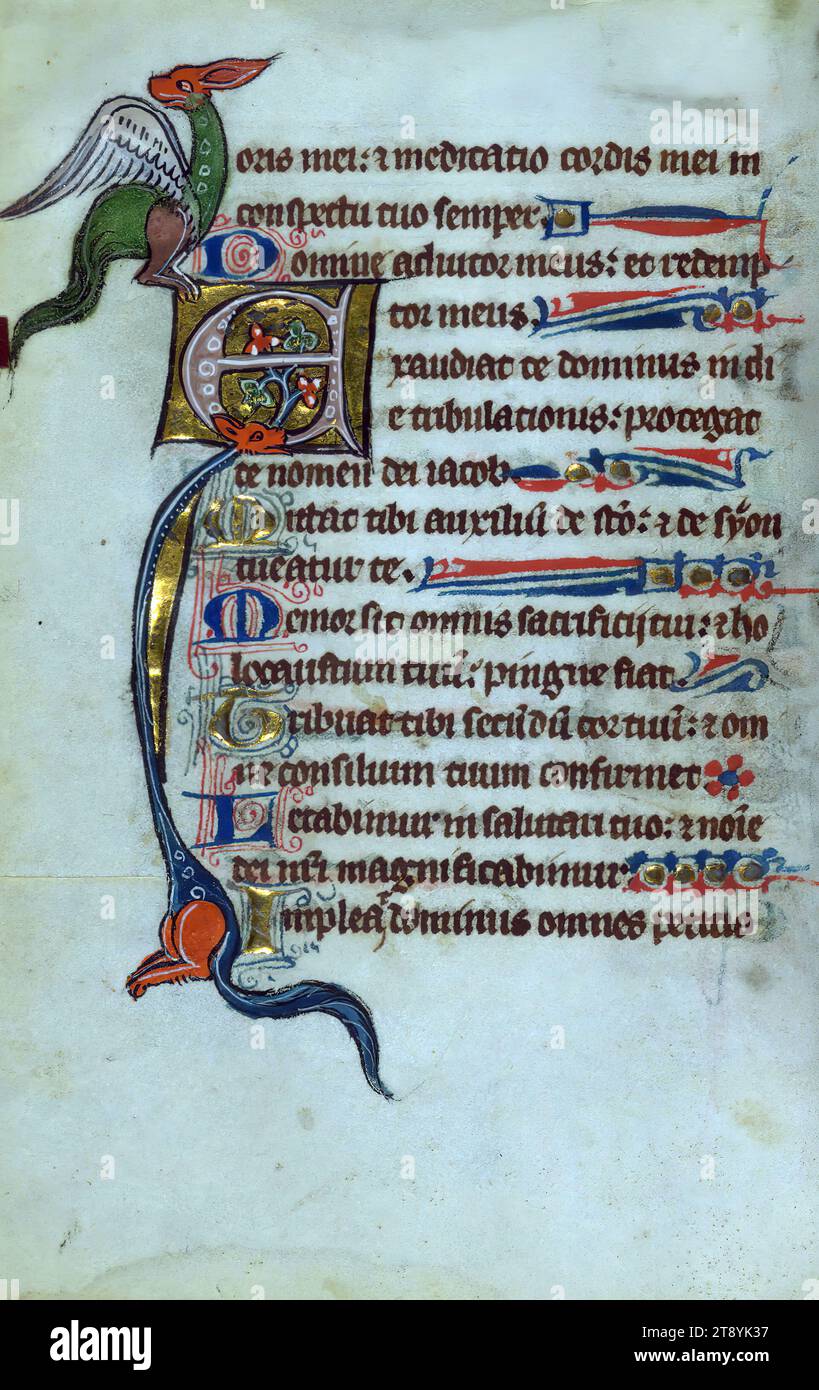 oris mei: & meditatio cordis mei in
conspectu tuo semper.
Domine adiutor meus: et redemp
tor meus.
Exaudiat te dominus in di
e tribulationis: protegat
te nomen dei iacob.
Mittat tibi auxiliū de sc̄o: & de syon
tueatur te.
Memor sit omnis sacrificij tui: & ho
locaustum tuū: pingue fiat.
Tribuat tibi secūdū cor tuū: & om
ne consilium tuum confirmet
Letabimur in salutari tuo: & noīe
dei nr̄i magnificabimur
Impleat dominus omnes peticio
alamy
Image ID: 2T8YK37
www.alamy.com